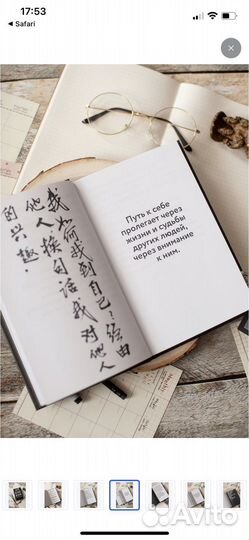 17:53
Safari
我如何找到自己：经由
他人换句话我对他人
的兴趣。
Путь к себе
пролегает через
жизни и судьбы
других людей,
через внимание
к ним.
Avito